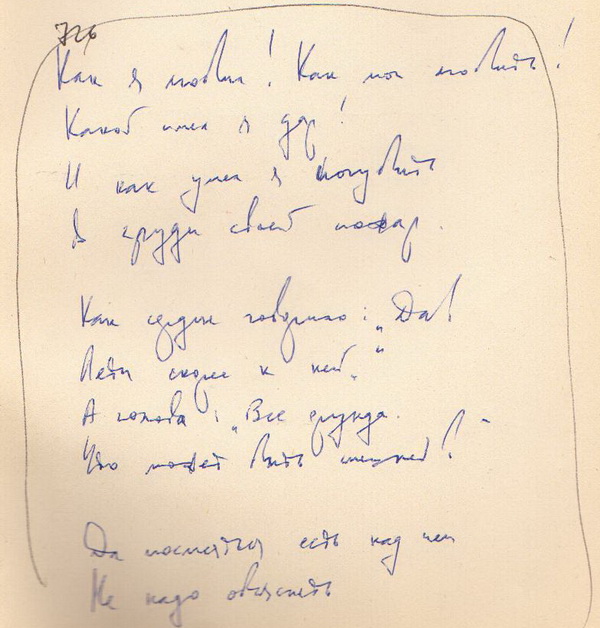 726
Как я любил! Как мог любить!
Какой имел я дар!
И как умел я погубить
В груди своей пожар.
Как сердце говорило: „Да!
Лети скорее к ней“
А голова: „Все ерунда.
Что может быть смешней!“
Да посмеяться есть над чем
Не надо объяснять